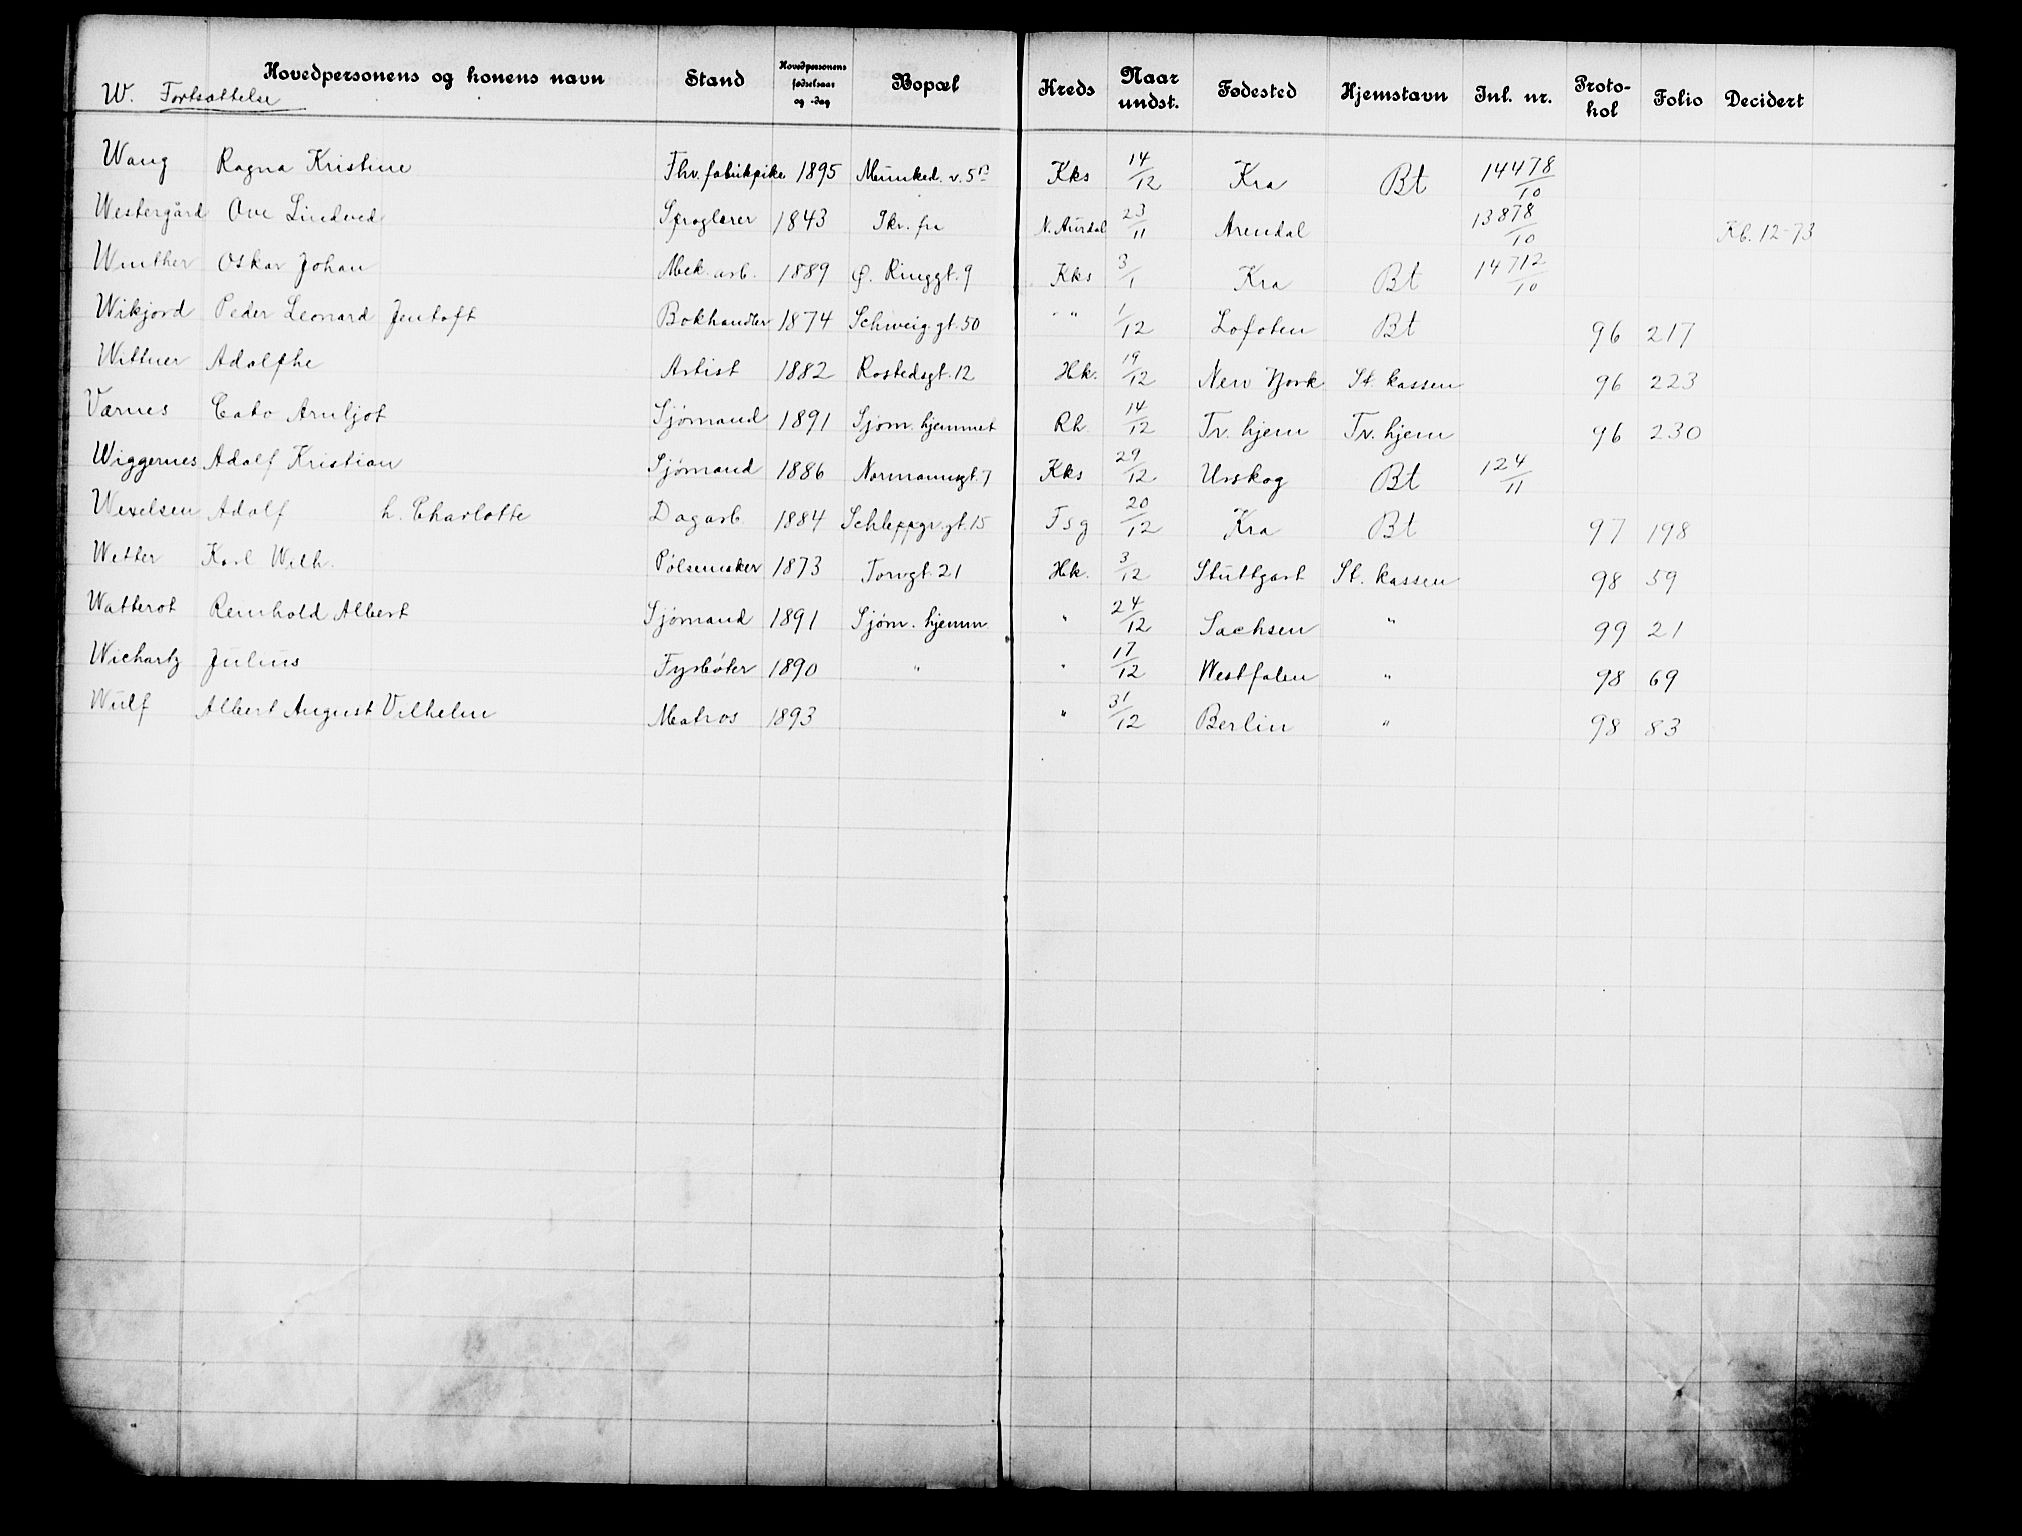 W. Fortsættelse
Hovedpersonens og konens navn Stand Hovedpersonens fødselsaar og -dag Bopæl Kreds Naar undst. Fødested Hjemstavn Inl. nr. Protokol Folio Decidert
Wang Ragna Kristine Fhv. fabrikpike 1895 Munked. v. 5 Kks 14/12 Kra Bt 14478/10
Westergård Ove Lindved Sproglærer 1843 Skr. fra N. Aurdal 23/11 Arendal 13878/10 Kb. 12-73
Winther Oskar Johan Mek. arb. 1889 Ø. Ringgt. 9 Kks 3/1 Kra Bt 14712/10
Wikjord Peder Leonard Jentoft Bokhandler 1874 Schweig. gt. 50 " " 1/12 Lofoten Bt 96 217
Wittner Adolphe Artist 1882 Rostedsgt. 12 Hk. 19/12 New York St. kassen 96 223
Værnes Cato Arnljot Sjømand 1891 Sjøm. hjemmet Rh. 14/12 Tv. hjem Tv. hjem 96 230
Wiggernes Adolf Kristian Sjømand 1886 Normannsgt. 7 Kks 29/12 Urskog Bt 124/11
Wexelsen Adolf h. Charlotte Dagarb. 1884 Schleppgr. gt. 15 Fsg 20/12 Kra Bt 97 198
Wetter Karl Wilh. Pølsemaker 1873 Torvgt. 21 Hk. 3/12 Stuttgart St. kassen 98 59
Watterot Reinhold Albert Sjømand 1891 Sjøm. hjemm " 24/12 Sachsen " 99 21
Wichartz Julius Fyrbøter 1890 " " 17/12 Westfalen " 98 69
Wulf Albert August Vilhelm Matros 1893 " 31/12 Berlin " 98 83